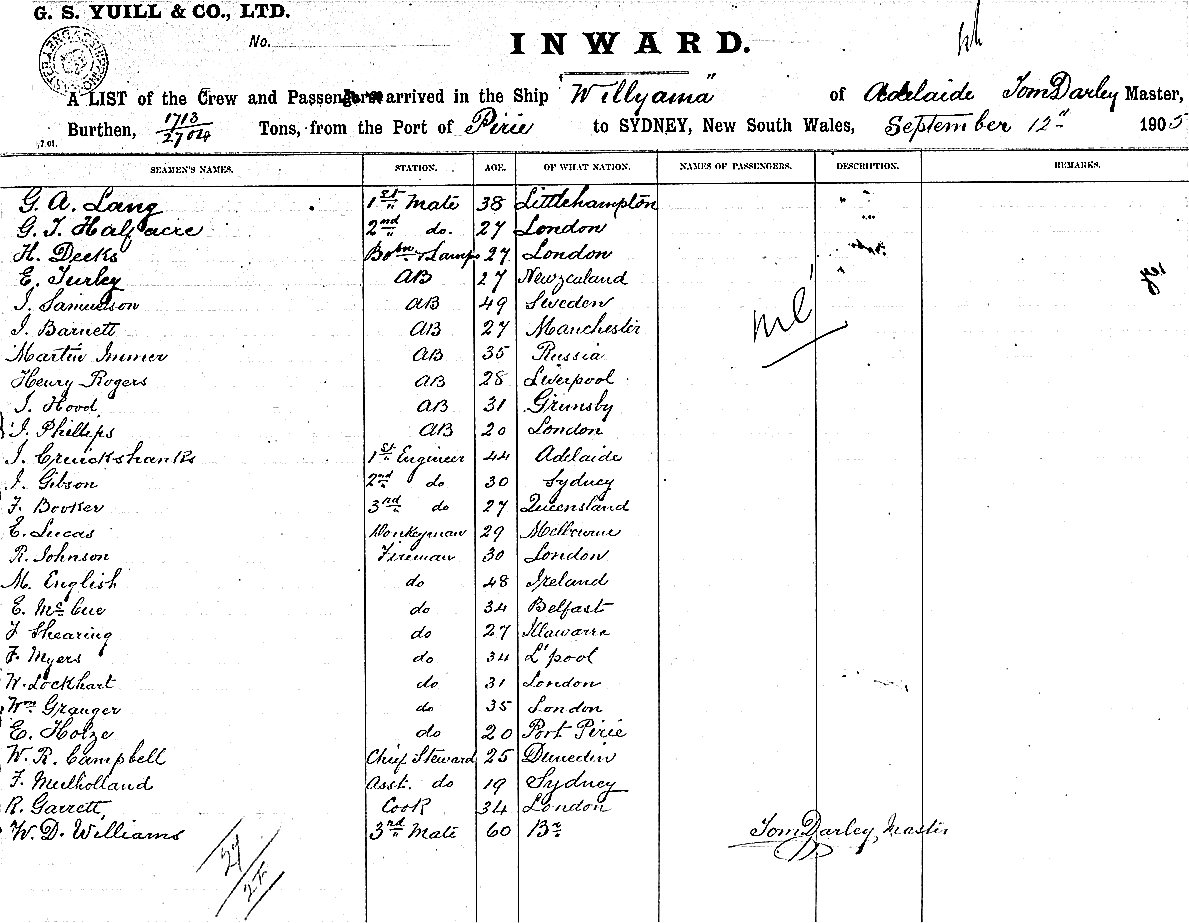 G. S. YUILL & CO., LTD.
No.
INWARD.
A LIST of the Crew and Passengers arrived in the Ship "Willyama" of Adelaide Tom Darley Master,
Burthen, 1713/2704 Tons, from the Port of Pirie to SYDNEY, New South Wales, September 12" 1905
SEAMEN'S NAMES. STATION. AGE. OF WHAT NATION. NAMES OF PASSENGERS. DESCRIPTION. REMARKS.
G. A. Lang 1st Mate 38 Littlehampton
G. T. Halfacre 2nd do. 27 London
H. Deeks Bosn & Lamps 27 London
E. Turley AB 27 Newzealand
J. Samuelson AB 49 Sweden
J. Barnett AB 27 Manchester
Martin Immer AB 35 Russia
Henry Rogers AB 28 Liverpool
J. Hood AB 31 Grimsby
J. Phillips AB 20 London
J. Cruickshanks 1st Engineer 44 Adelaide
J. Gibson 2nd do 30 Sydney
F. Booker 3rd do 27 Queensland
E. Lucas Donkeyman 29 Melbourne
R. Johnson Fireman 30 London
M. English do 48 Ireland
E. McCue do 34 Belfast
F Shearing do 27 Illawarra
F. Myers do 34 L'pool
W. Lockhart do 31 London
Wm Granger do 35 London
E. Holze do 20 Port Pirie
W. R. Campbell Chief Steward 25 Dunedin
F. Mulholland Asst. do 19 Sydney
R. Garrett, Cook 34 London
W. D. Williams 3rd Mate 60 Br
Tom Darley, Master